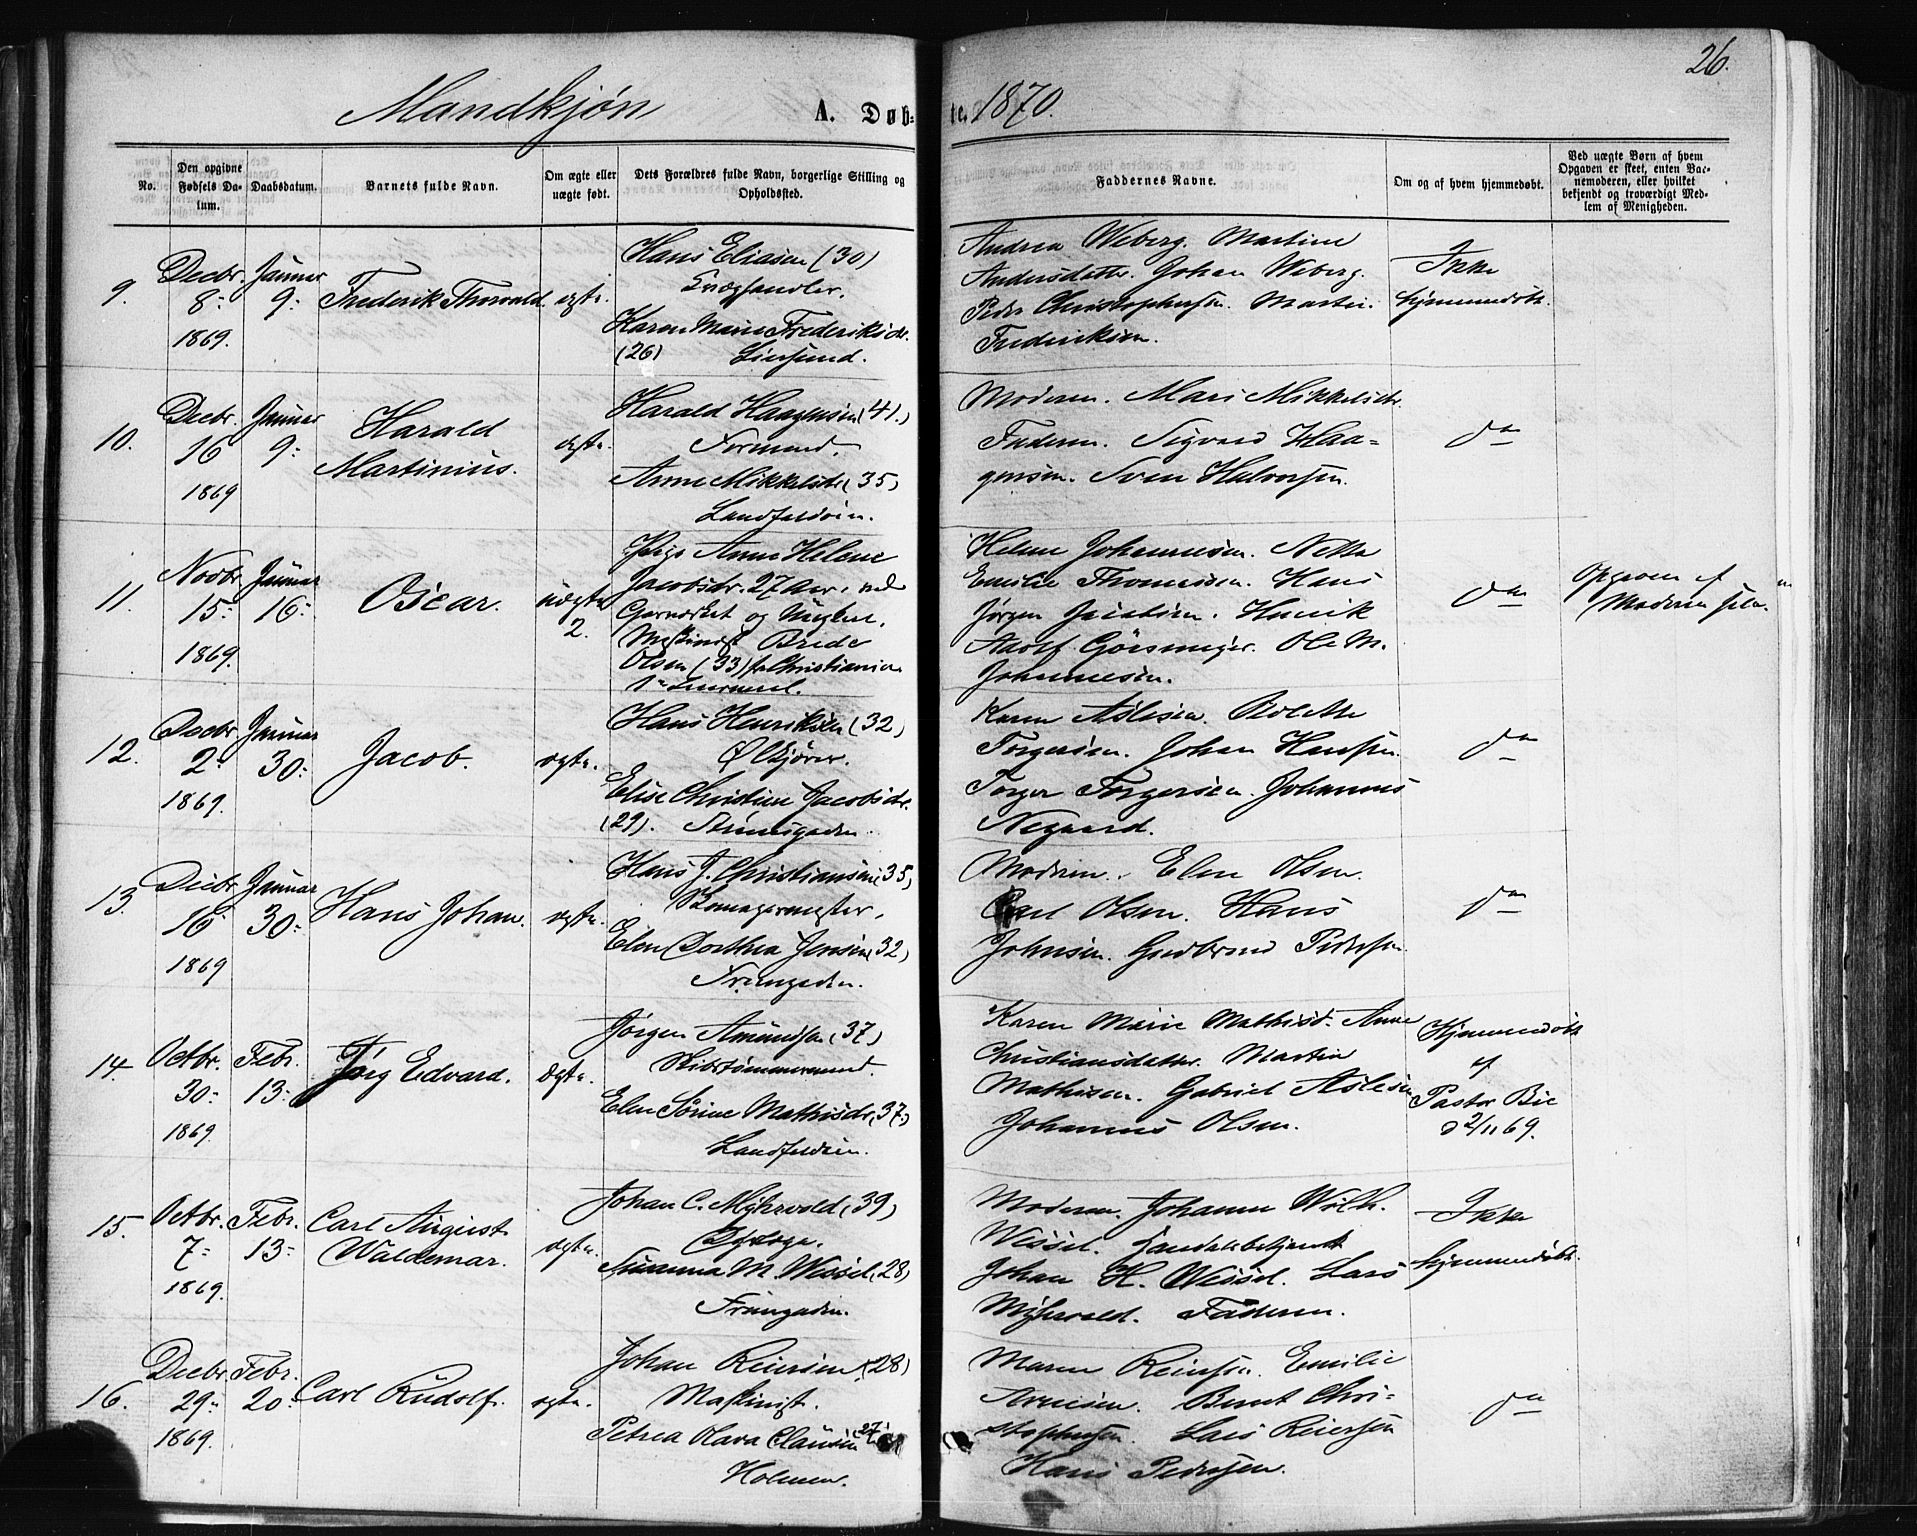 26.
Mandkjøn A. Døbte. 1870.
No.
Den opgivne Fødsels Datum.
Daabsdatum.
Barnets fulde Navn.
Om ægte eller uægte født.
Dets Forældres fulde Navn, borgerlige Stilling og Opholdssted.
Faddernes Navne.
Om og af hvem hjemmedøbt.
Ved uægte Børn af hvem Opgaven er skeet, enten Barnemoderen, eller hvilket bekjendt og troværdigt Medlem af Menigheden.
9.
Decbr.
8-
1869.
Januar
9-
Frederik Thorvald
ægte.
Hans Eliasen (30)
Karen Marie Frederiksdr.
(26)
Andrea Weberg. Martine
Andersdatter. Johan Weberg.
Peder Christophersen. Martin
Frederiksen.
Ikke
hjemmedøbt.
10.
Decbr.
16
1869
Januar
9-
Harald
Martinius.
ægte.
Harald Haagensen (41.)
Formand.
Anne Mikkelsdr. (35)
Landfaldøen.
Moderen. Mari Mikkelsdr.
Faderen. Sigvard Haa=
gensen. Sven Halvorsen.
do
11.
Novbr.
15-
1869.
Januar
16-
Oscar.
uægte
2.
Pige Anne Helene
Jacobsdr. 27 Aar, ved
og Ungkarl,
Maskinist Brede
Olsen (33) fra Christiania
Helene Johannesen. Netta
Emilie Thomassen. Hans
Jørgen Jacobsen. Henrik
Adolf Ole M.
Johannesen.
do
Opgaven af
Moderen selv.
12.
Decbr.
2-
1869.
Januar
30-
Jacob.
ægte.
Hans Henriksen (32)
Ølkjører.
Elise Christine Jacobsdr.
(29).
Karen Aslesen.
Torgersen. Johan Hansen.
Torger Torgersen. Johannes
Negaard.
do
13.
Decbr.
16
1869
Januar
30-
Hans Johan.
ægte.
Hans J. Christiansen (35)
Skomagermester,
Elen Dorthea Jensen (32)
Moderen. Elen Olsen.
Carl Olsen. Hans
Johnsen. Gudbrand Pedersen
do
14.
Octbr.
30-
1869.
Febr.
13-
Jørg Edvard.
Ægte.
Jørgen Amundsen (37)
Skibstømmermand.
Elen Sørine Mathisdr. (37)
Landfaldøen.
Karen Marie Mathisd. Anne
Christiansdatter. Martin
Mathisen. Gabriel Aslesen
Johannes Olsen.
Hjemmedøbt
af
Pastor Bie
d 2/11 69.
15.
Octbr.
7-
1869.
Febr.
13-
Carl August
Waldemar.
ægte.
Johan C. Myhrvold (39)
Susanna M. Wessel (28)
Moderen. Johanne Wilh.
Wessel. Handelsbetjent
Johan H. Wessel. Lars
Myhrvold. Faderen.
Ikke
hjemmedøbt.
16.
Decbr.
29-
1869.
Febr.
20-
Carl Rudolf.
ægte.
Johan Reiersen (28)
Maskinist.
Petrea Olava Clausen (27)
Holmen.
Maren Reiersen. Emilie
Arnesen. Bernt Chri=
stophersen. Lars Reiersen
Hans Pedersen.
do